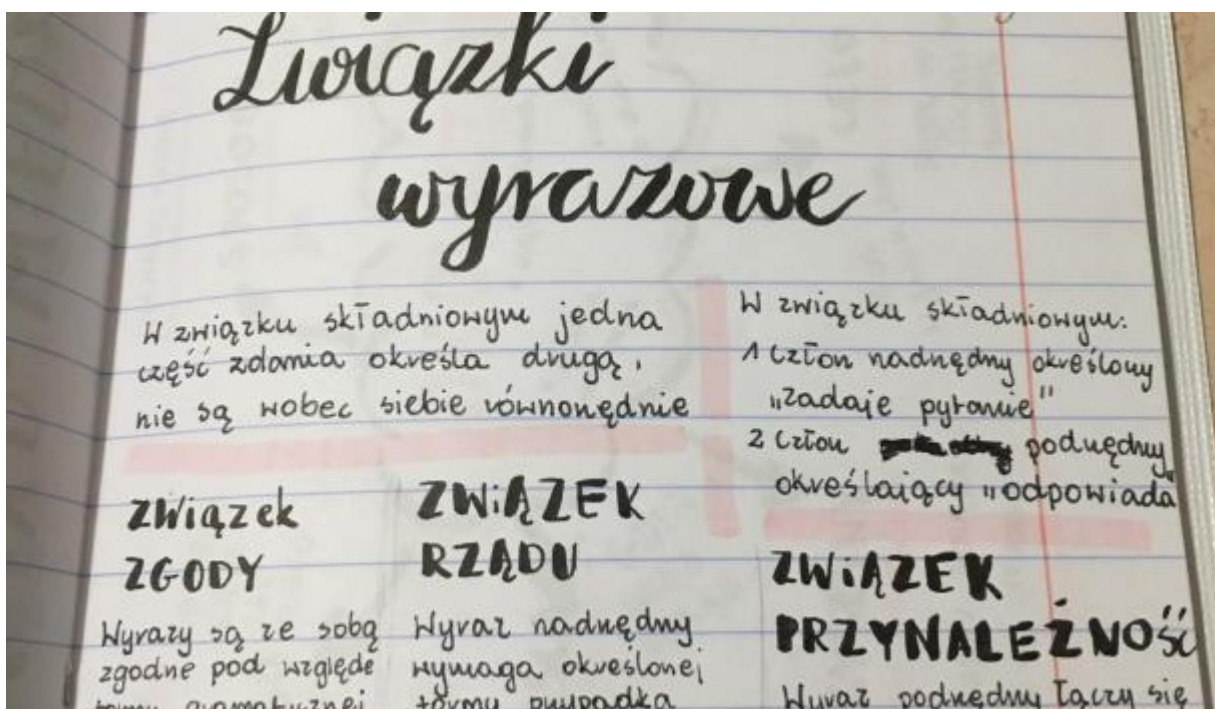 Związki
wyrazowe
W związku składniowym jedna
część zdania określa drugą,
nie są wobec siebie równorzędnie
W związku składniowym:
1 Człon nadrzędny określony
"zadaje pytanie"
2 Człon podrzędny
określający "odpowiada"
Związek
ZGODY
Wyrazy są ze sobą
zgodne pod względe
formy gramatycznej
ZWiĄZEK
RZĄDU
Wyraz nadrzędny
wymaga określonej
formy przypadka
ZWiĄZEK
PRZYNALEŻNOŚĆ
Wyraz podrzędny łączy się